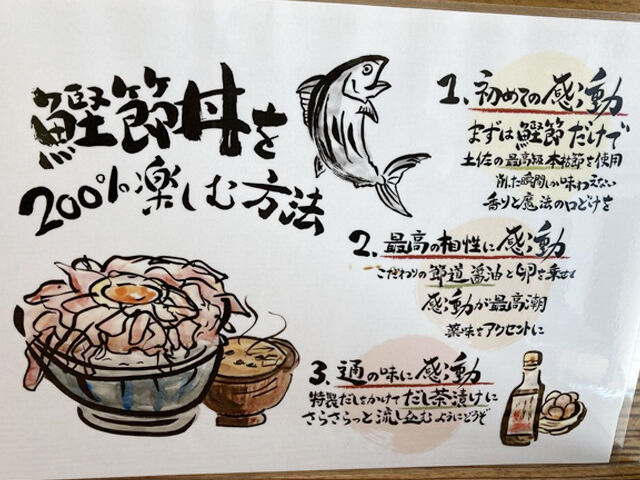 鰹節丼を
200%楽しむ方法
1、初めての感動
まずは鰹節だけで
土佐の最高級本枯節を使用
削った瞬間しか味わえない
香りと魔法の口どけを
2、最高の相性に感動
こだわりの節道醤油と卵を乗せて
感動が最高潮
薬味をアクセントに
3、通の味に感動
特製だしをかけてだし茶漬けに
さらさらっと流し込むようにどうぞ